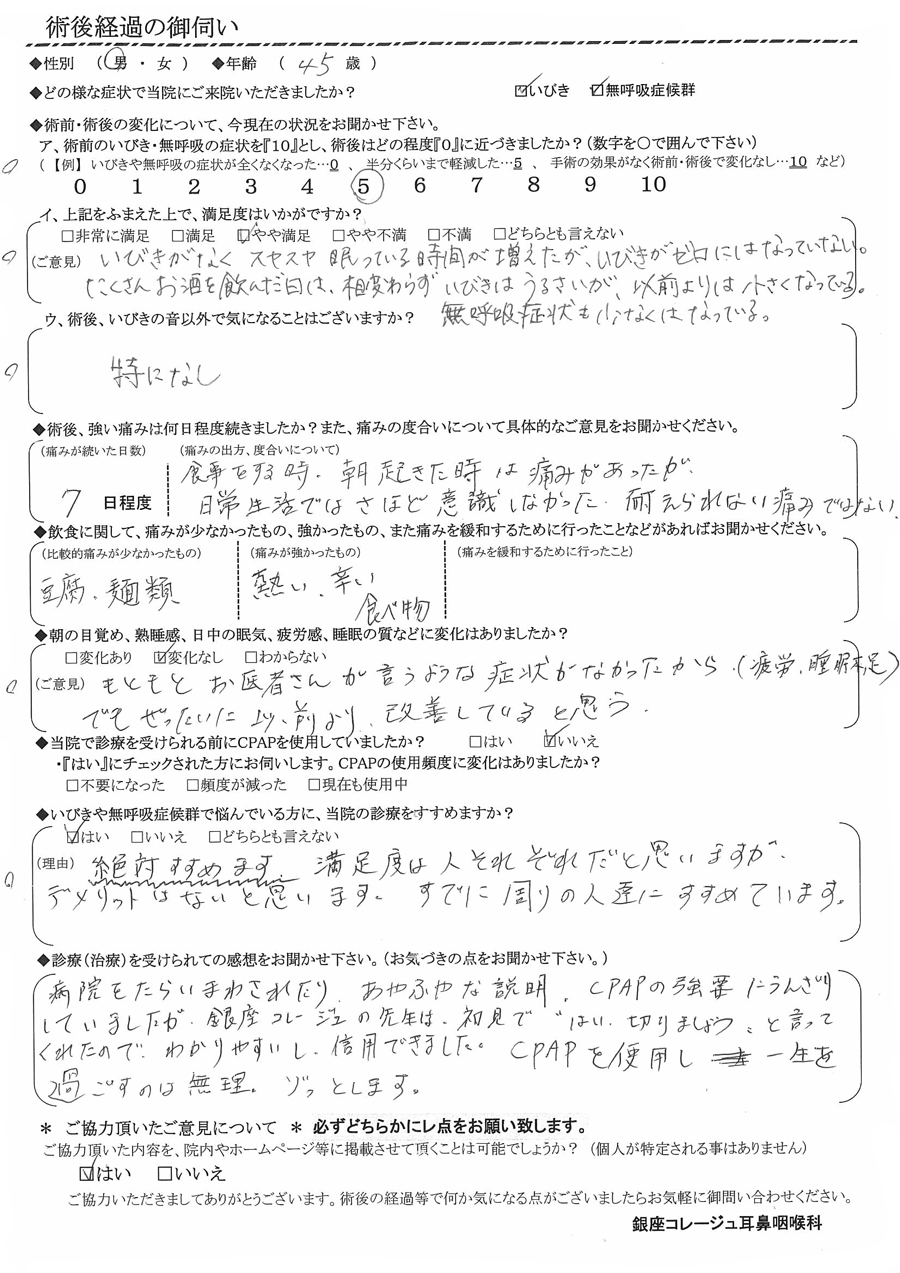 術後経過の御伺い
◆性別 (男・女) ◆年齢 (45歳)
◆どの様な症状で当院にご来院いただきましたか? ☑いびき ☑無呼吸症候群
◆術前・術後の変化について、今現在の状況をお聞かせ下さい。
ア、術前のいびき・無呼吸の症状を『10』とし、術後はどの程度『0』に近づきましたか?(数字を〇で囲んで下さい)
(【例】いびきや無呼吸の症状が全くなくなった…0 、半分くらいまで軽減した…5 、手術の効果がなく術前・術後で変化なし…10 など)
0 1 2 3 4 5 6 7 8 9 10
イ、上記をふまえた上で、満足度はいかがですか?
□非常に満足 □満足 ☑やや満足 □やや不満 □不満 □どちらとも言えない
(ご意見) いびきがなく スヤスヤ 眠っている時間が増えたが、いびきがゼロにはなっていない。
たくさんお酒を飲んだ日は、相変わらず いびきはうるさいが、以前よりは小さくなっている。
ウ、術後、いびきの音以外で気になることはございますか? 無呼吸症状も少なくはなっている。
特になし
◆術後、強い痛みは何日程度続きましたか?また、痛みの度合いについて具体的なご意見をお聞かせください。
(痛みが続いた日数) (痛みの出方、度合いについて)
食事をする時、朝起きた時は痛みがあったが、
7 日程度 日常生活ではさほど意識しなかった 耐えられない痛みではない、
◆飲食に関して、痛みが少なかったもの、強かったもの、また痛みを緩和するために行ったことなどがあればお聞かせください。
(比較的痛みが少なかったもの) (痛みが強かったもの) (痛みを緩和するために行ったこと)
豆腐、麺類 熱い、辛い
食べ物
◆朝の目覚め、熟睡感、日中の眠気、疲労感、睡眠の質などに変化はありましたか?
□変化あり ☑変化なし □わからない
(ご意見) もともと お医者さんが言うような症状がなかったから、(疲労、睡眠不足)
でもぜったいに以前より、改善していると思う、
◆当院で診療を受けられる前にCPAPを使用していましたか? □はい ☑いいえ
・『はい』にチェックされた方にお伺いします。CPAPの使用頻度に変化はありましたか?
□不要になった □頻度が減った □現在も使用中
◆いびきや無呼吸症候群で悩んでいる方に、当院の診療をすすめますか?
☑はい □いいえ □どちらとも言えない
(理由) 絶対すすめます、満足度は人それぞれだと思いますが、
デメリットはないと思います。すでに周りの人達にすすめています。
◆診療(治療)を受けられての感想をお聞かせ下さい。(お気づきの点をお聞かせ下さい。)
病院をたらいまわされたり、あやふやな説明、CPAPの強要にうんざり
していましたが、銀座コレージュの先生は、初見で"はい、切りましょう"と言って
くれたので、わかりやすいし、信用できました。CPAPを使用し 一生を
過ごすのは無理。ゾっとします。
* ご協力頂いたご意見について * 必ずどちらかにレ点をお願い致します。
ご協力頂いた内容を、院内やホームページ等に掲載させて頂くことは可能でしょうか? (個人が特定される事はありません)
☑はい □いいえ
ご協力いただきましてありがとうございます。術後の経過等で何か気になる点がございましたらお気軽に御問い合わせください。
銀座コレージュ耳鼻咽喉科